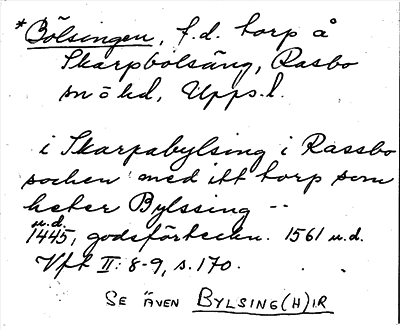 *Bölsingen, f.d. torp å
Skarpbolsäng, Rasbo
sn ö hd, Upps.l.
i Skarpabylsing i Rassbo
sochen med itt torp som
heter Bylssing --
u.d.
1445, godsförteckn. 1561 u.d.
Vft II: 8-9, s. 170.
SE ÄVEN BYLSING(H)IR